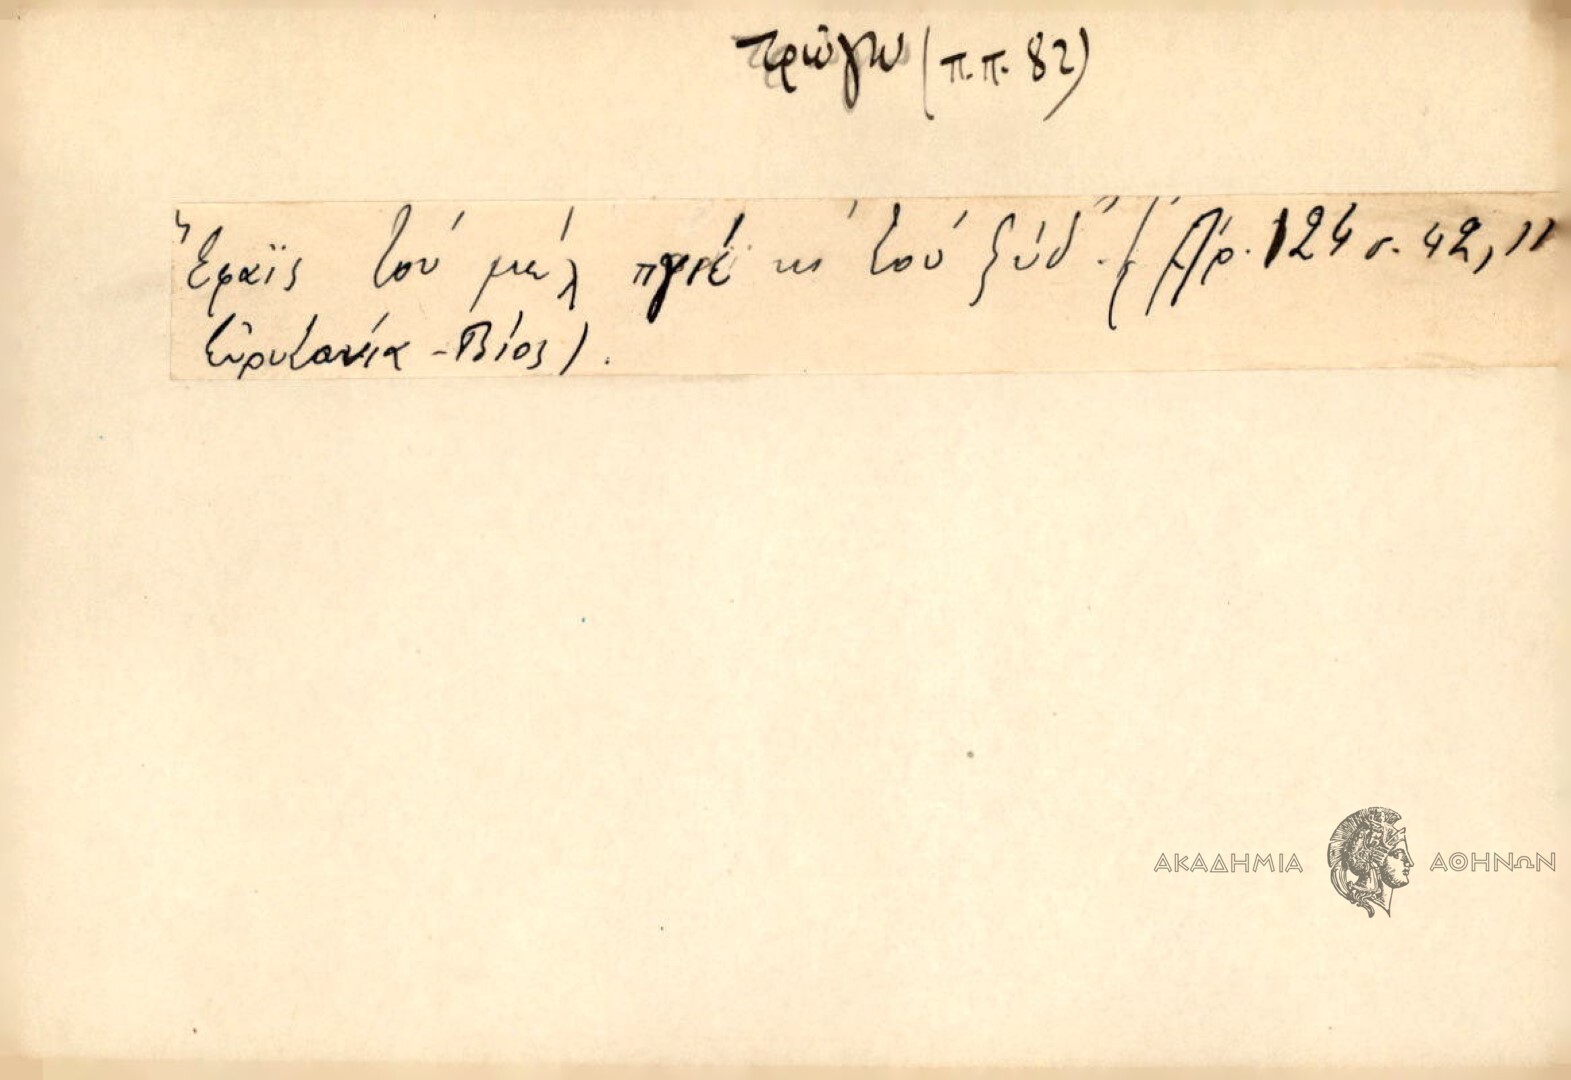 τρώγω (π.π. 82)
Ἔφαϊς τού μέλ πγιέ κι τού ξύδ' (Ἀρ. 124 σ. 42, 11
Εὐρυτανία - Βίος).
ΑΚΑΔΗΜΙΑ ΑΘΗΝΩΝ